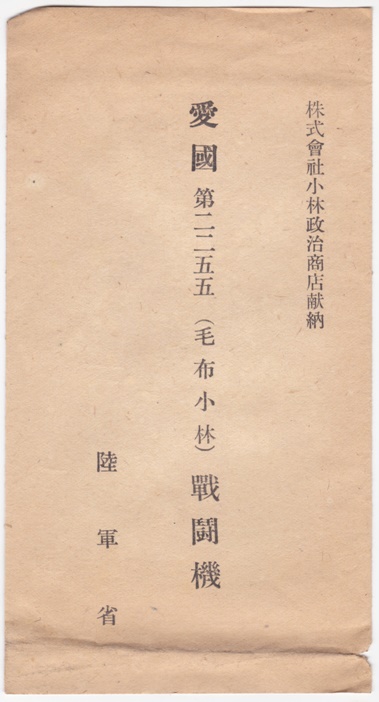 株式會社小林政治商店献納
愛國第二二五五(毛布小林)戰鬪機
陸軍省